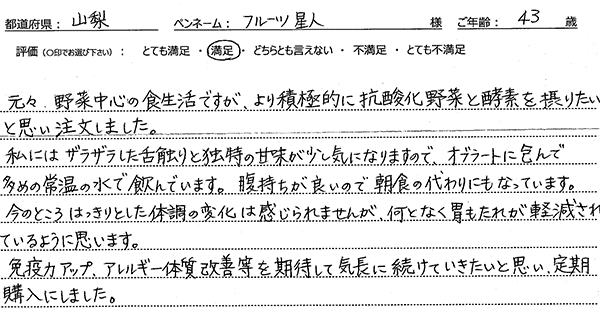 都道府県: 山梨 ペンネーム: フルーツ星人 様 ご年齢: 43 歳
評価(○印でお選び下さい): とても満足 ・ 満足 ・ どちらとも言えない ・ 不満足 ・ とても不満足
元々、野菜中心の食生活ですが、より積極的に抗酸化野菜と酵素を摂りたい
と思い注文しました。
私にはザラザラした舌触りと独特の甘味が少し気になりますので、オブラートに包んで
多めの常温の水で飲んでいます。腹持ちが良いので朝食の代わりにもなっています。
今のところはっきりとした体調の変化は感じられませんが、何となく胃もたれが軽減され
ているように思います。
免疫力アップ、アレルギー体質改善等を期待して気長に続けていきたいと思い、定期
購入にしました。